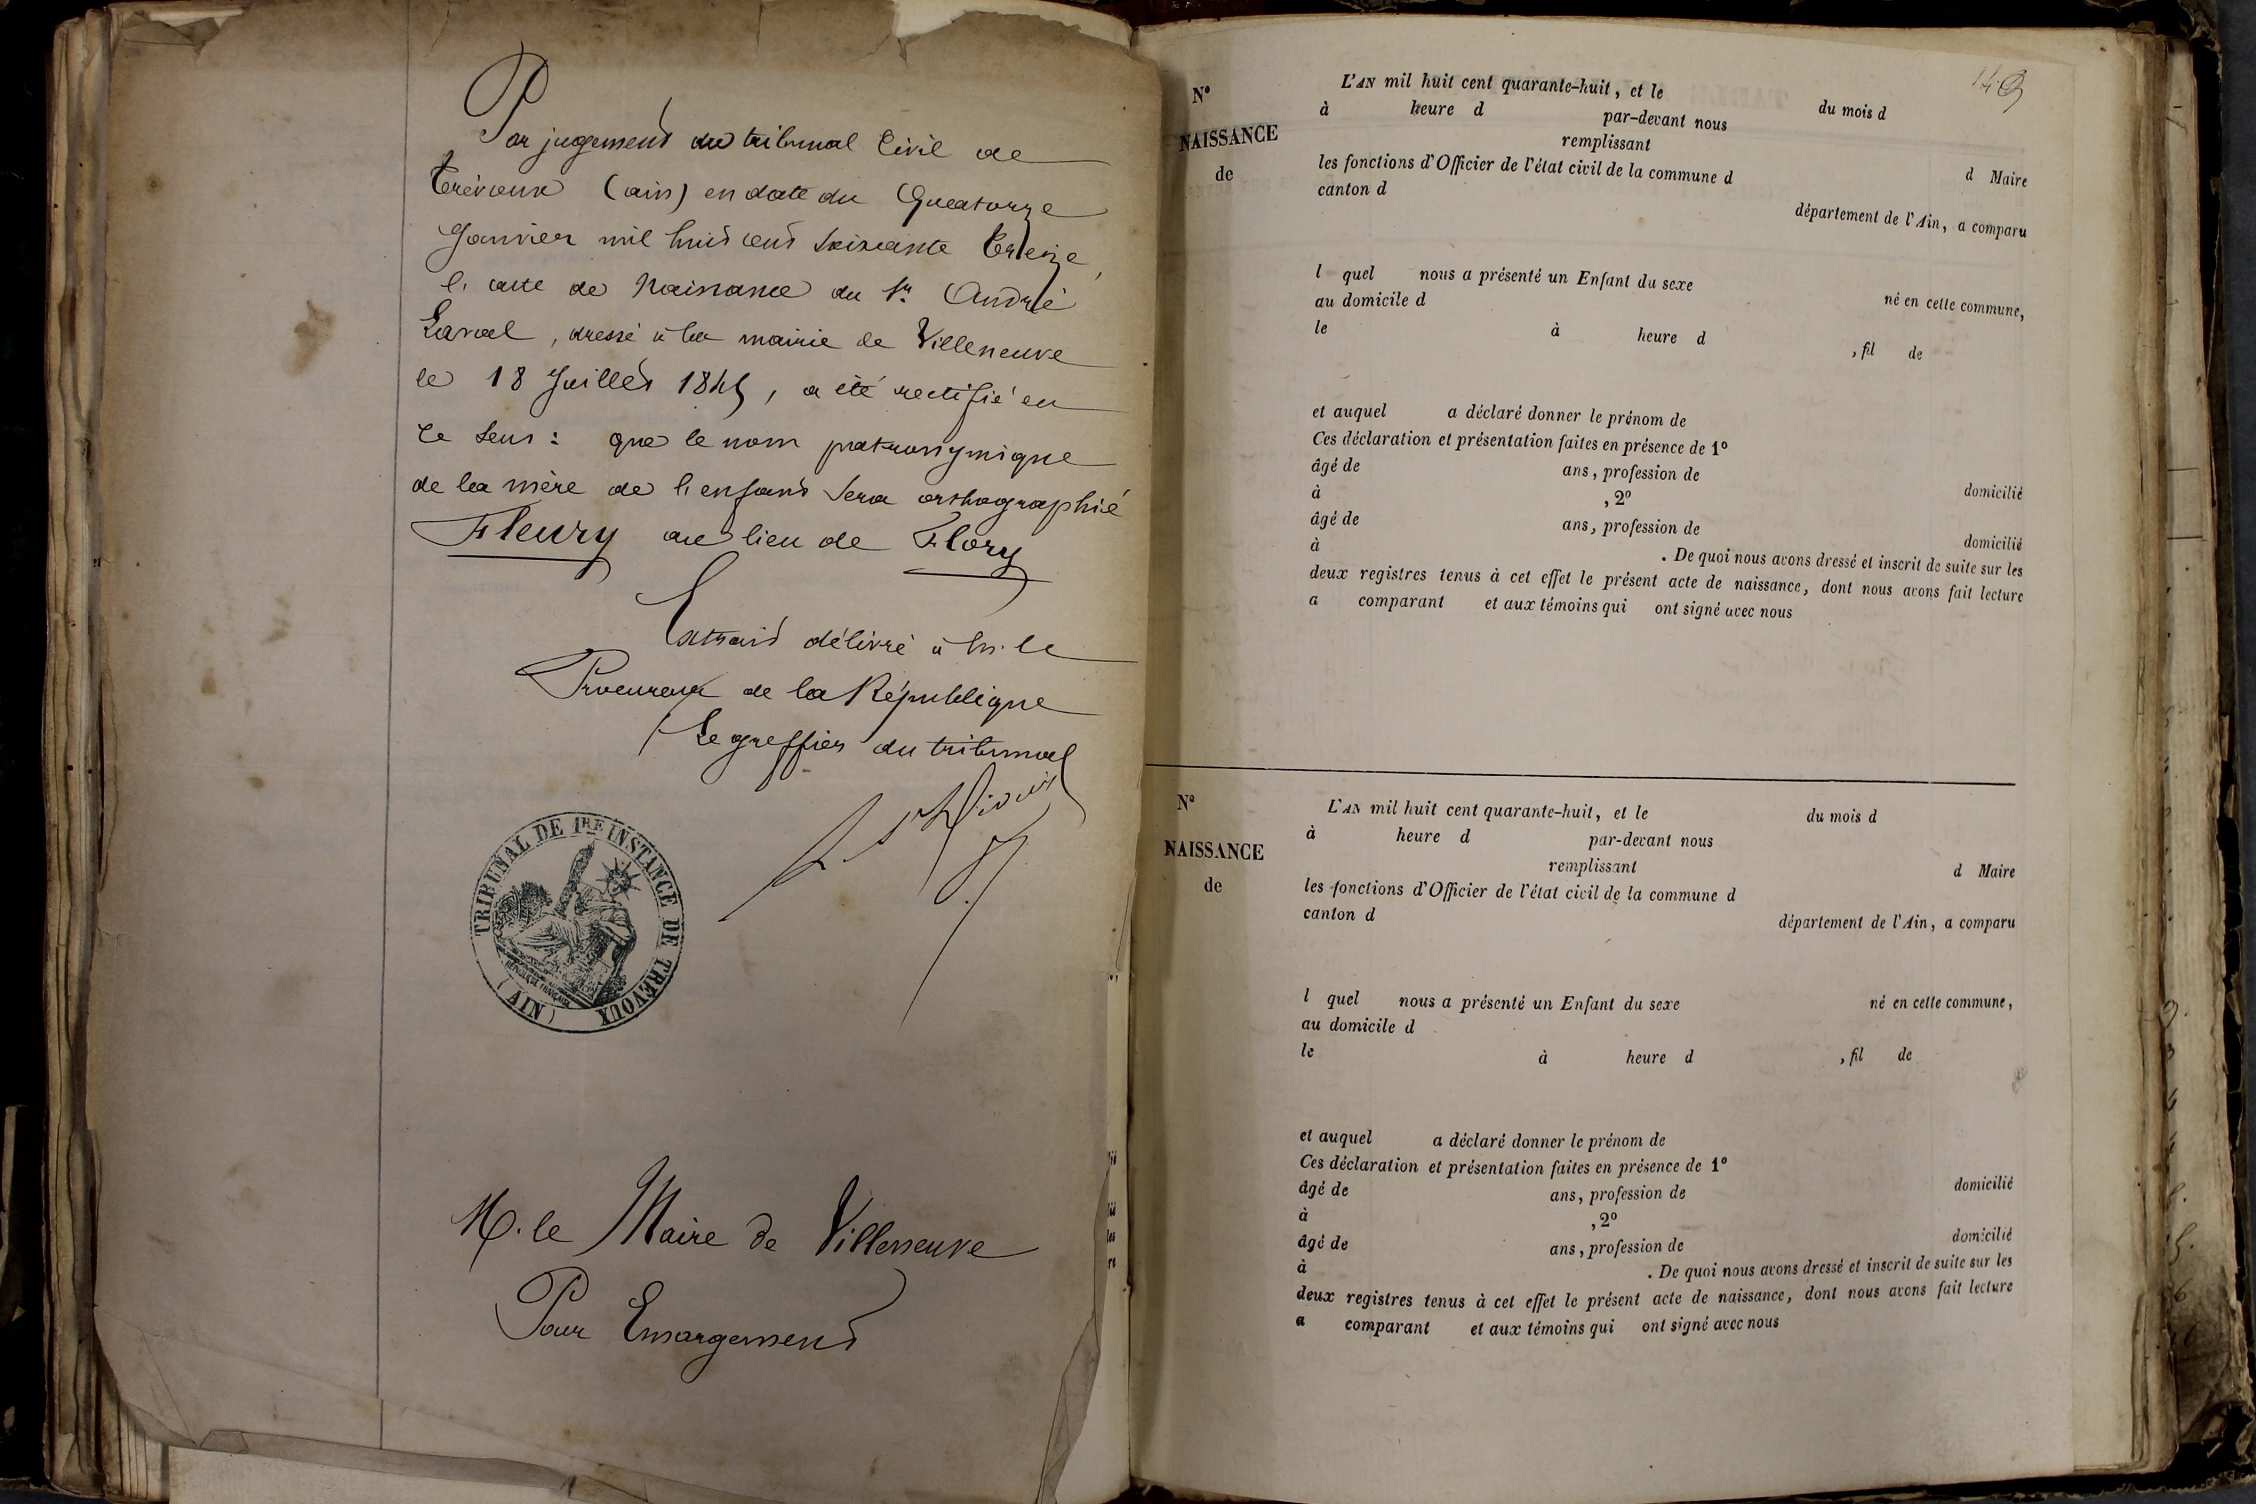 Par jugement du tribunal Civil de
Trévoux (ain) en date du Quatorze
Janvier mil huit cent soixante treize,
l'acte de Naissance du Sr. André
Laval, dressé à la mairie de Villeneuve
le 18 Juillet 184, a été rectifié en
ce sens : que le nom patronymique
de la mère de l'enfant sera orthographié
Fleury au lieu de Flory
Extrait délivré à M. le
Procureur de la République
Le greffier du tribunal
TRIBUNAL DE 1RE INSTANCE DE TRÉVOUX
(AIN)
RÉPUBLIQUE FRANÇAISE
M. le Maire de Villeneuve
Pour Emargement
N° L'AN mil huit cent quarante-huit, et le du mois d
NAISSANCE
de
à heure d par-devant nous
remplissant d Maire
les fonctions d'Officier de l'état civil de la commune d
canton d département de l'Ain, a comparu
l quel nous a présenté un Enfant du sexe né en cette commune,
au domicile d
le à heure d , fil de
et auquel a déclaré donner le prénom de
Ces déclaration et présentation faites en présence de 1°
âgé de ans, profession de domicilié
à , 2°
âgé de ans, profession de domicilié
à . De quoi nous avons dressé et inscrit de suite sur les
deux registres tenus à cet effet le présent acte de naissance, dont nous avons fait lecture
a comparant et aux témoins qui ont signé avec nous
N° L'AN mil huit cent quarante-huit, et le du mois d
NAISSANCE
de
à heure d par-devant nous
remplissant d Maire
les fonctions d'Officier de l'état civil de la commune d
canton d département de l'Ain, a comparu
l quel nous a présenté un Enfant du sexe né en cette commune,
au domicile d
le à heure d , fil de
et auquel a déclaré donner le prénom de
Ces déclaration et présentation faites en présence de 1°
âgé de ans, profession de domicilié
à , 2°
âgé de ans, profession de domicilié
à . De quoi nous avons dressé et inscrit de suite sur les
deux registres tenus à cet effet le présent acte de naissance, dont nous avons fait lecture
a comparant et aux témoins qui ont signé avec nous